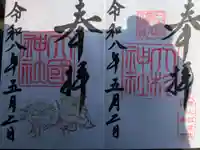 奉拝
神社
令和八年五月二日
奉拝
大國
神社
令和八年五月二日